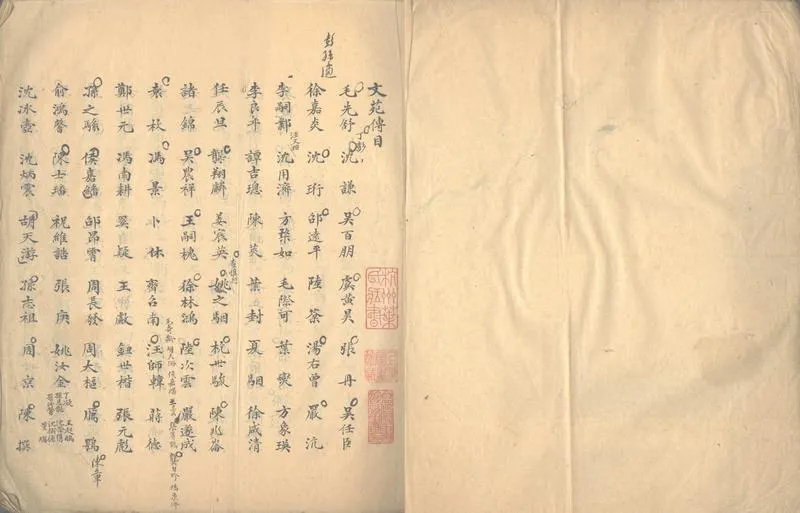 彭孫遹
文苑傳目
毛先舒 丁澎 沈謙 吳百朋 虞黃昊 張丹 吳任臣
徐嘉炎 沈珩 邵遠平 陸葇 湯右曾 嚴沆
李嗣鄴 沈用濟 方棨如 毛際可 葉燮 方象瑛
李良年 譚吉璁 陳英 葉封 夏駰 徐咸清
任辰旦 龔翔麟 姜宸英 查慎行 姚之駰 杭世駿 陳兆崙
諸錦 吳農祥 王嗣槐 徐林鴻 陸次雲 嚴遂成
袁 馮景 齊召南 汪師韓 蔣德
鄭世元 馮南耕 奚疑 王 鈕世楷 張元彪
孫之騄 侯嘉繙 邵昂霄 周長發 周大樞 厲鶚 陳章
俞鴻馨 陳士璠 祝維誥 張庚 姚汝金
沈冰壺 沈炳震 胡天游 孫志祖 周京 陳撰